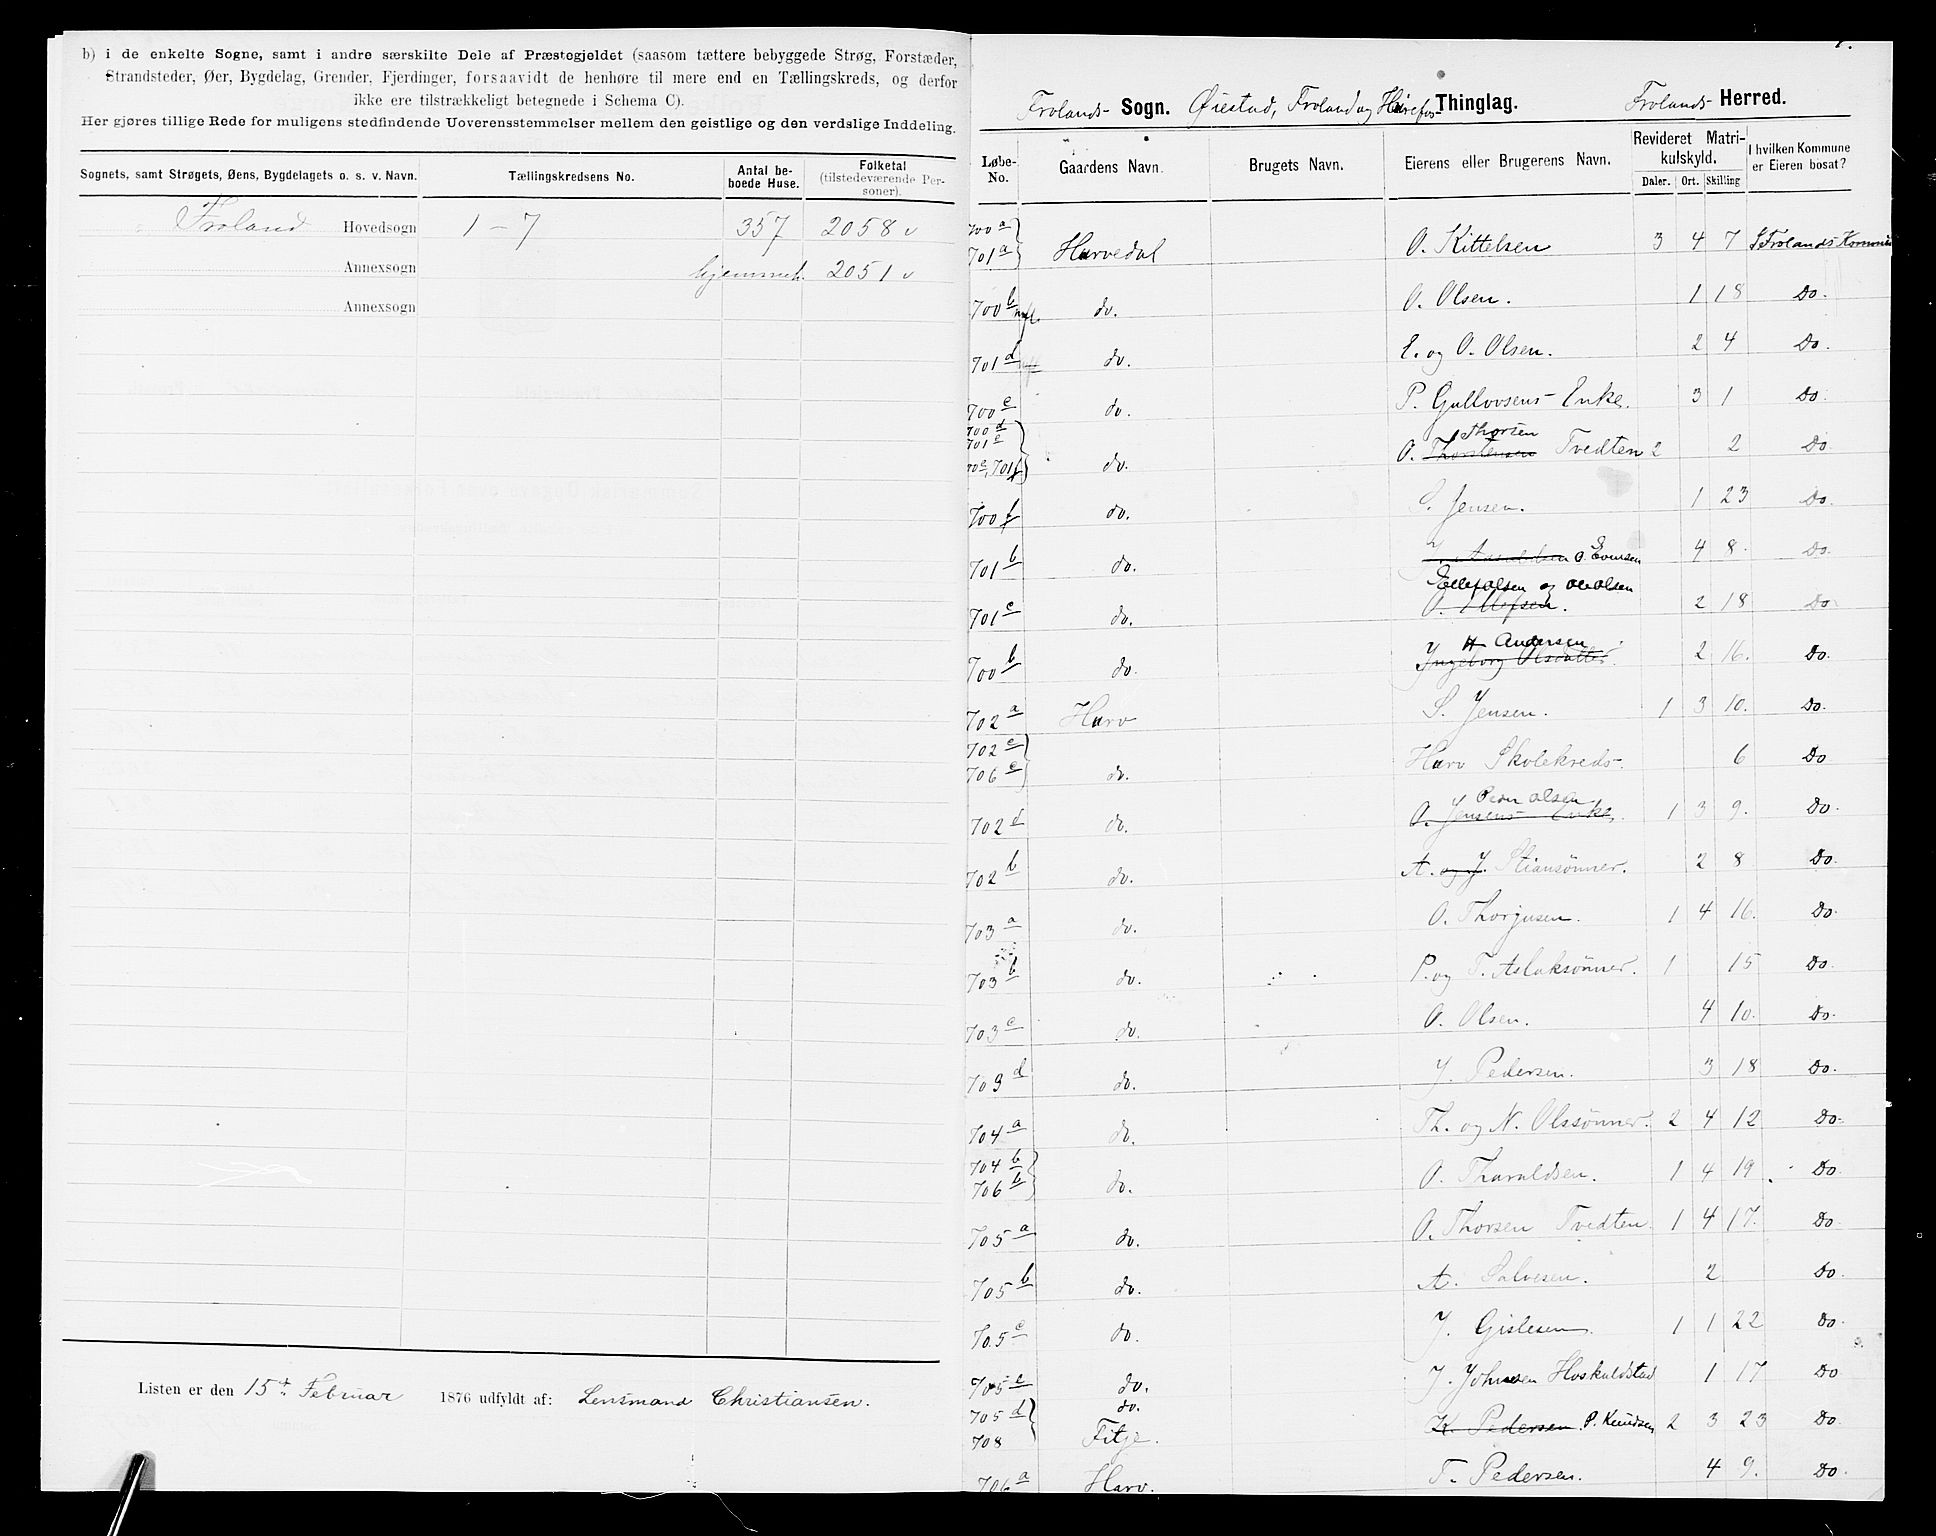 b) i de enkelte Sogne, samt i andre særskilte Dele af Præstegjeldet (saasom tættere bebyggede Strøg, Forstæder,
Strandsteder, Øer, Bygdelag, Grender, Fjerdinger, forsaavidt de henhøre til mere end en Tællingskreds, og derfor
ikke ere tilstrækkeligt betegnede i Schema C).
Her gjøres tillige Rede for muligens stedfindende Uoverensstemmelser mellem den geistlige og den verdslige Inddeling.
Sognets, samt Strøgets, Øens, Bygdelagets o. s. v. Navn. Tællingskredsens No. Antal beboede Huse. Folketal (tilstedeværende Personer).
Froland Hovedsogn 1 - 7 357 2058
Annexsogn hjemmeh. 2051
Annexsogn
Listen er den 15de Februar 1876 udfyldt af: Lensmand Christiansen.
Frolands Sogn. Øiestad, Froland og Herefos Thinglag. Frolands Herred.
Løbe-No. Gaardens Navn. Brugets Navn. Eierens eller Brugerens Navn. Revideret Matrikulskyld. Daler. Ort. Skilling I hvilken Kommune er Eieren bosat?
700a 701a Harvedal O. Kittelsen 3 4 7 I Frolands Kommune
700b do. O. Olsen. 1 18 Do.
701d do. E. og O. Olsen. 2 4 Do.
700c do. P. Gullovsens Enke. 3 1 Do.
700d 701e 700e, 701f do. O. Thorstensen Thorsen Tvedten 2 2 Do
700f do. S. Jensen. 1 23 Do
701b do. O. Evensen 4 8 Do.
701c do. O. Ellefsen. Ellef Olsen og Ole Olsen 2 18 Do
700b do. Ingeborg Olsdatter. H Andersen 2 16. Do.
702a Harv S. Jensen. 1 3 10. Do.
702c 706c do. Harv Skolekreds 6 Do
702d do. O. Jensens Enke, Peder Olsen 1 3 9. Do.
702b do. A. og J. Stiansönner. 2 8 Do.
703a do. O. Thorjusen. 1 4 16. Do.
703b do. P. og T. Aslaksönner. 1 15 Do.
703c do. O. Olsen. 4 10. Do.
703d do. J. Pedersen. 3 18 Do.
704a do. Th. og N. Olssönner. 2 4 12 Do.
704b 706b do. O. Tharaldsen. 1 4 19 Do
705a do. O. Thorsen Tvedten 1 4 17. Do
705b do. A. Salvesen. 2 Do.
705c do. J. Gislesen. 1 1 22 Do.
705e do. J. Johnsen Hoskuldstad 1 17 Do
705d 708 do. Fitje. K. Pedersen. P. Knudsen 2 3 23 Do
706a Harv. T. Pedersen. 4 9. Do.